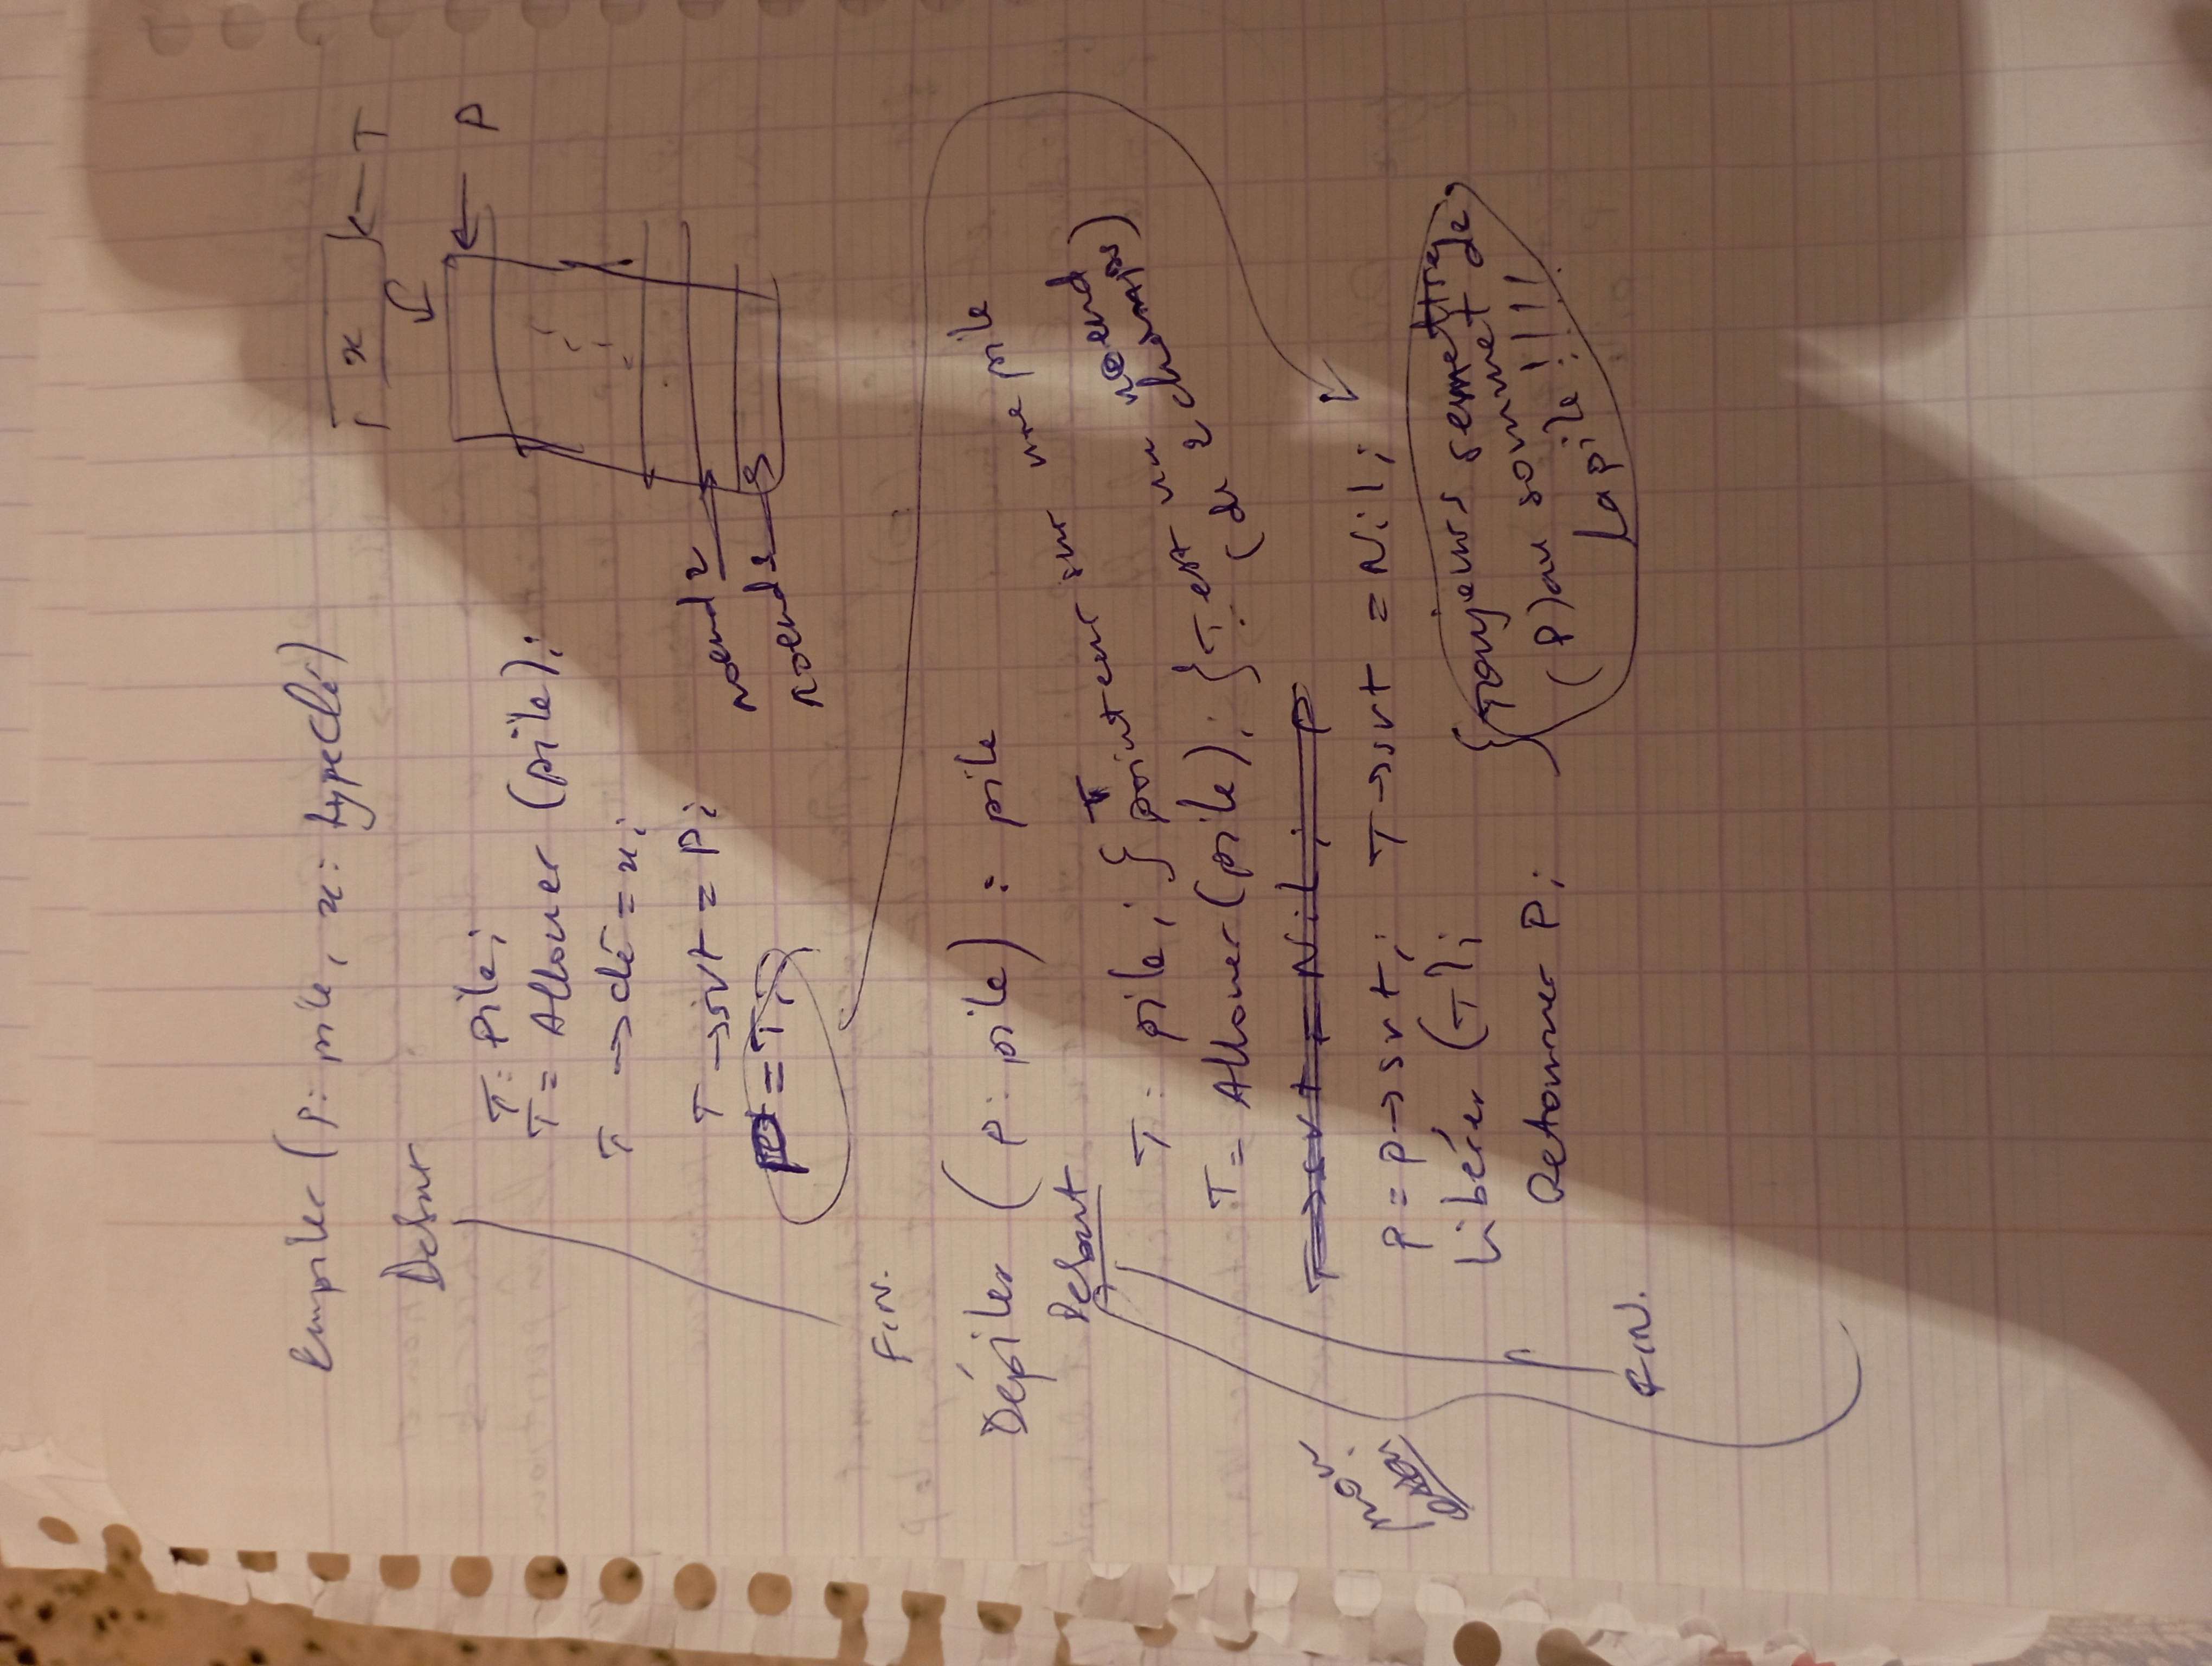 Empiler (P: pile, x: typeclé)
x ← T
Debut
← P
T: pile;
T = Allouer (pile);
T → clé = x;
T → svt = P;
noeud 2
P = T;
noeud 1
FIN.
Dépiler (P: pile) : pile
Debut
T: pile; } T pointeur sur une pile
T = Allouer (pile); } T est un noeud
(de 2 champs)
T → svt = Nil; P
mon
essai
P = P → svt; T → svt = Nil;
Libérer (T);
Retourner P;
{ Toujours remettre
(P) au sommet de
la pile !!!!
FIN.